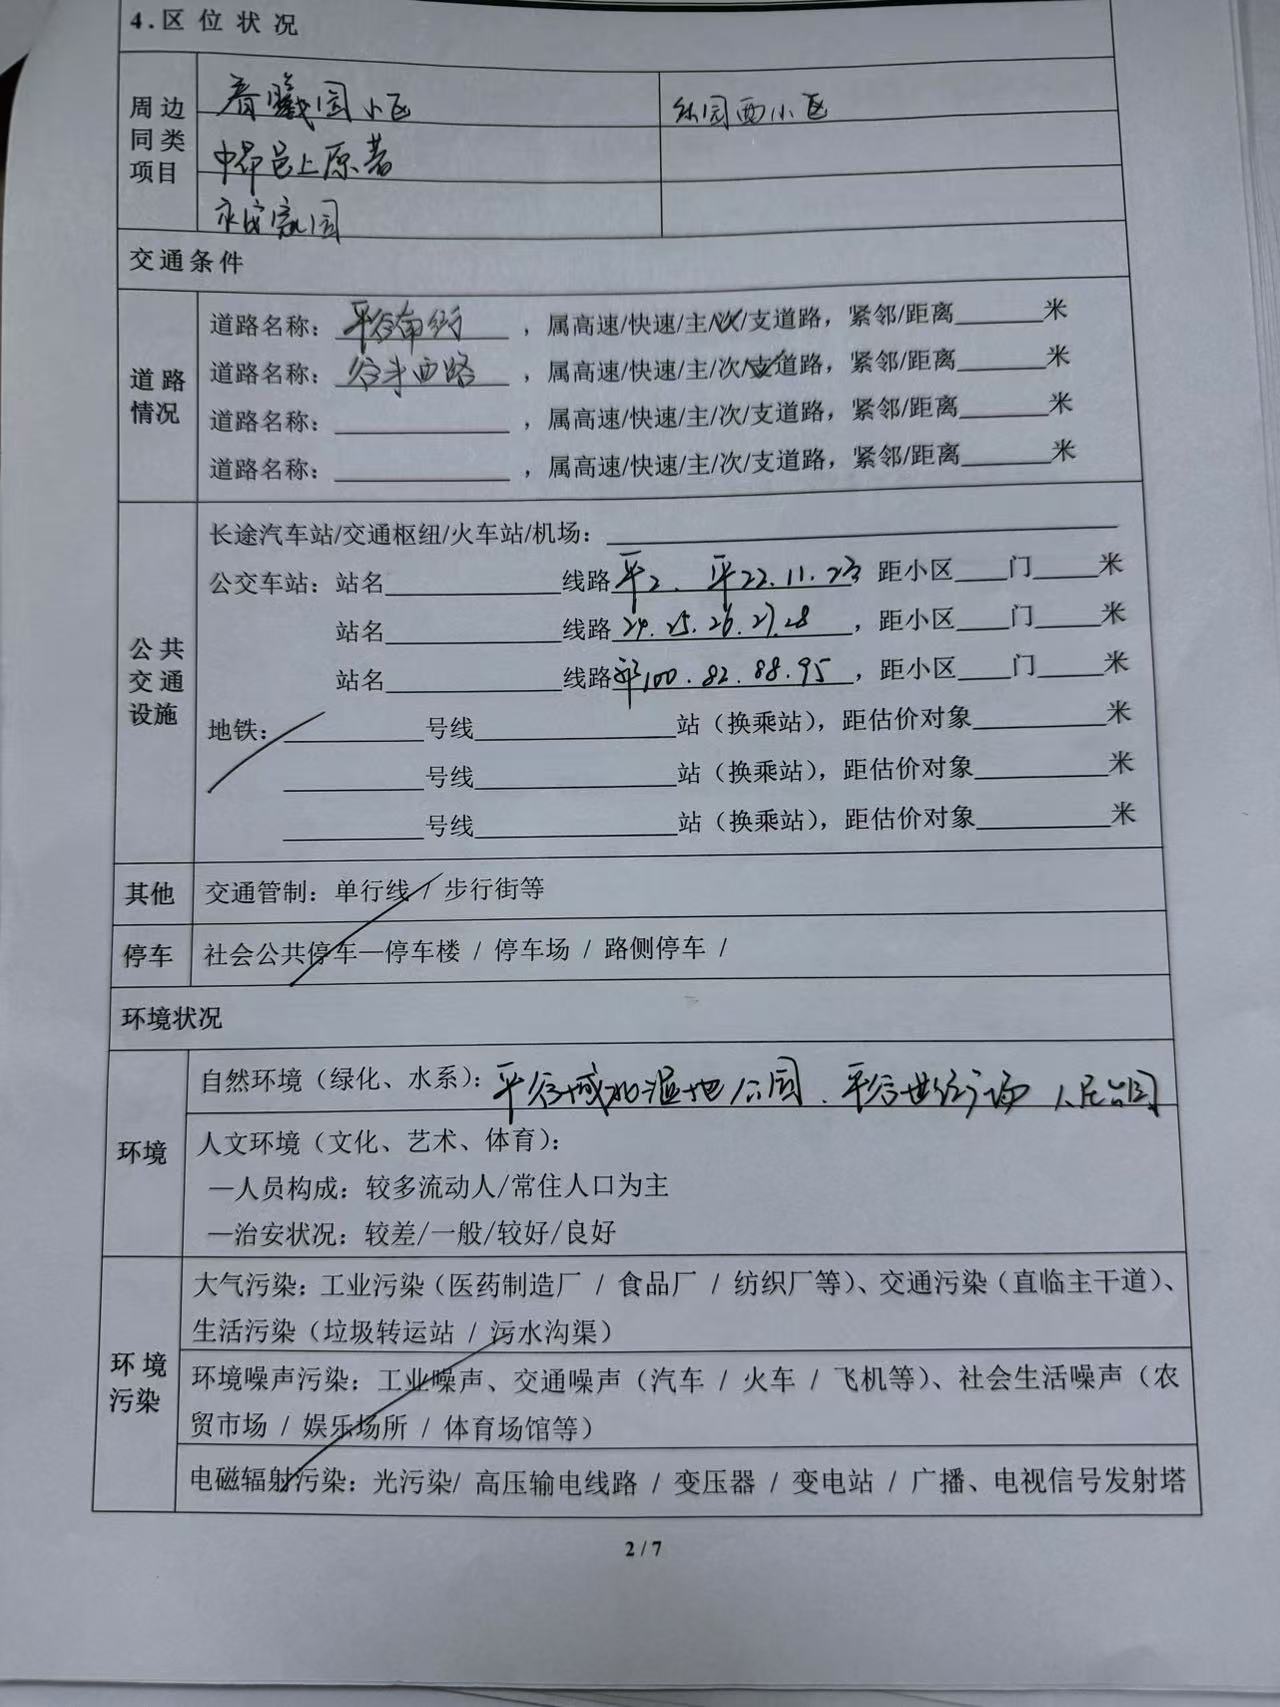 4.区 位 状 况
周 边
同 类
项目
小区
乐园西小区
中昂邑上原著
家园
交通条件
道 路
情况
道路名称：平谷南街，属高速/快速/主/次/支道路，紧邻/距离______米
道路名称：谷丰西路，属高速/快速/主/次/支道路，紧邻/距离______米
道路名称：____________，属高速/快速/主/次/支道路，紧邻/距离______米
道路名称：____________，属高速/快速/主/次/支道路，紧邻/距离______米
公 共
交 通
设施
长途汽车站/交通枢纽/火车站/机场：____________
公交车站：站名____________线路平2．平22.11.23 距小区____门_____米
站名____________线路24.25.26.27.28，距小区____门_____米
站名____________线路平100.82.88.95，距小区____门_____米
地铁：__________号线______________站（换乘站），距估价对象_________米
__________号线______________站（换乘站），距估价对象_________米
__________号线______________站（换乘站），距估价对象_________米
其他
交通管制：单行线 / 步行街等
停车
社会公共停车—停车楼 / 停车场 / 路侧停车 /
环境状况
环境
自然环境（绿化、水系）：平谷城北湿地公园、平谷世纪广场 人民公园
人文环境（文化、艺术、体育）：
—人员构成：较多流动人/常住人口为主
—治安状况：较差/一般/较好/良好
环 境
污染
大气污染：工业污染（医药制造厂 / 食品厂 / 纺织厂等）、交通污染（直临主干道）、
生活污染（垃圾转运站 / 污水沟渠）
环境噪声污染：工业噪声、交通噪声（汽车 / 火车 / 飞机等）、社会生活噪声（农
贸市场 / 娱乐场所 / 体育场馆等）
电磁辐射污染：光污染/ 高压输电线路 / 变压器 / 变电站 / 广播、电视信号发射塔
2 / 7